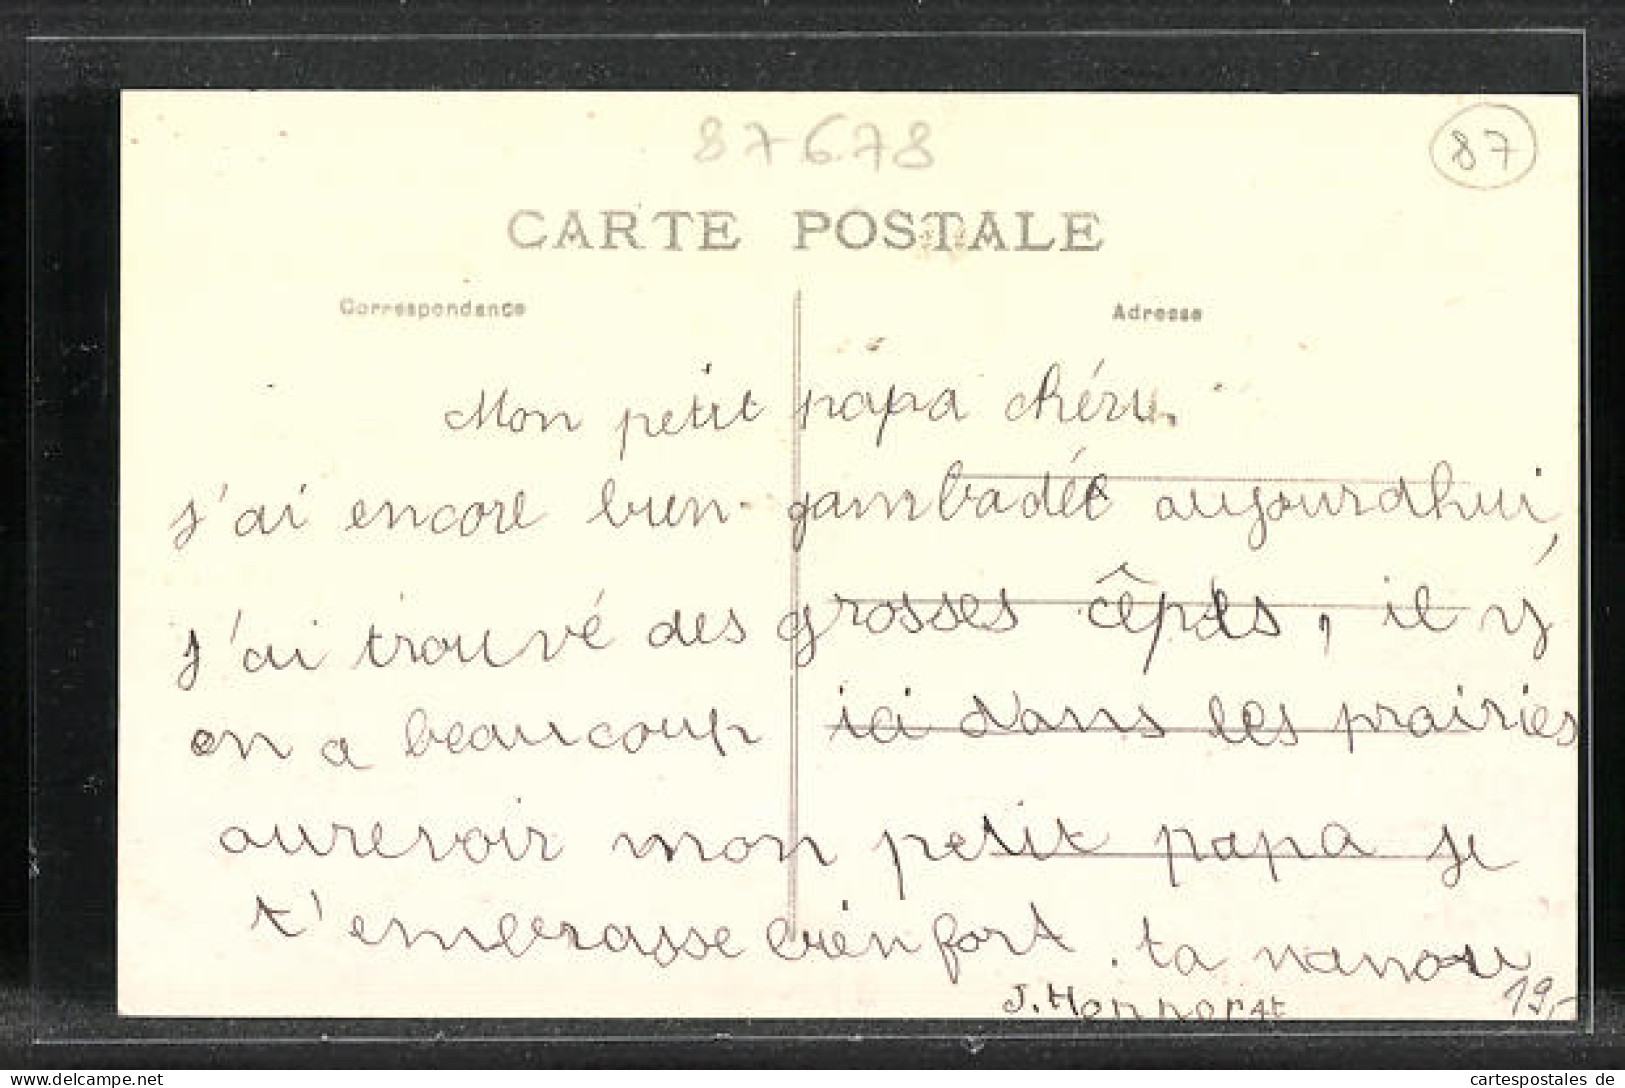 87678
87
CARTE POSTALE
Correspondance
Adresse
Mon petit papa chéri.
j'ai encore bien gambadée aujourdhui,
j'ai trouvé des grosses cêpes, il y
en a beaucoup ici dans les prairies
aurevoir mon petit papa je
t'embrasse bien fort. ta nanou
J.
19,-
delcampe.net
cartespostales de